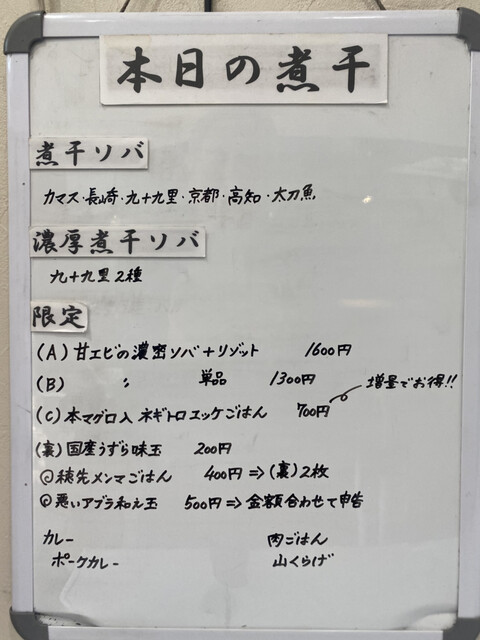 本日の煮干
煮干ソバ
カマス・長崎・九十九里・京都・高知・太刀魚
濃厚煮干ソバ
九十九里2種
限定
(A) 甘エビの濃密ソバ+リゾット 1600円
(B) 〃 単品 1300円
増量でお得!!
(C) 本マグロ入 ネギトロエッケごはん 700円
(裏) 国産うずら味玉 200円
◎穂先メンマごはん 400円⇒(裏)2枚
◎悪いアブラ和え玉 500円⇒金額合わせて申告
カレー 肉ごはん
ポークカレー 山くらげ